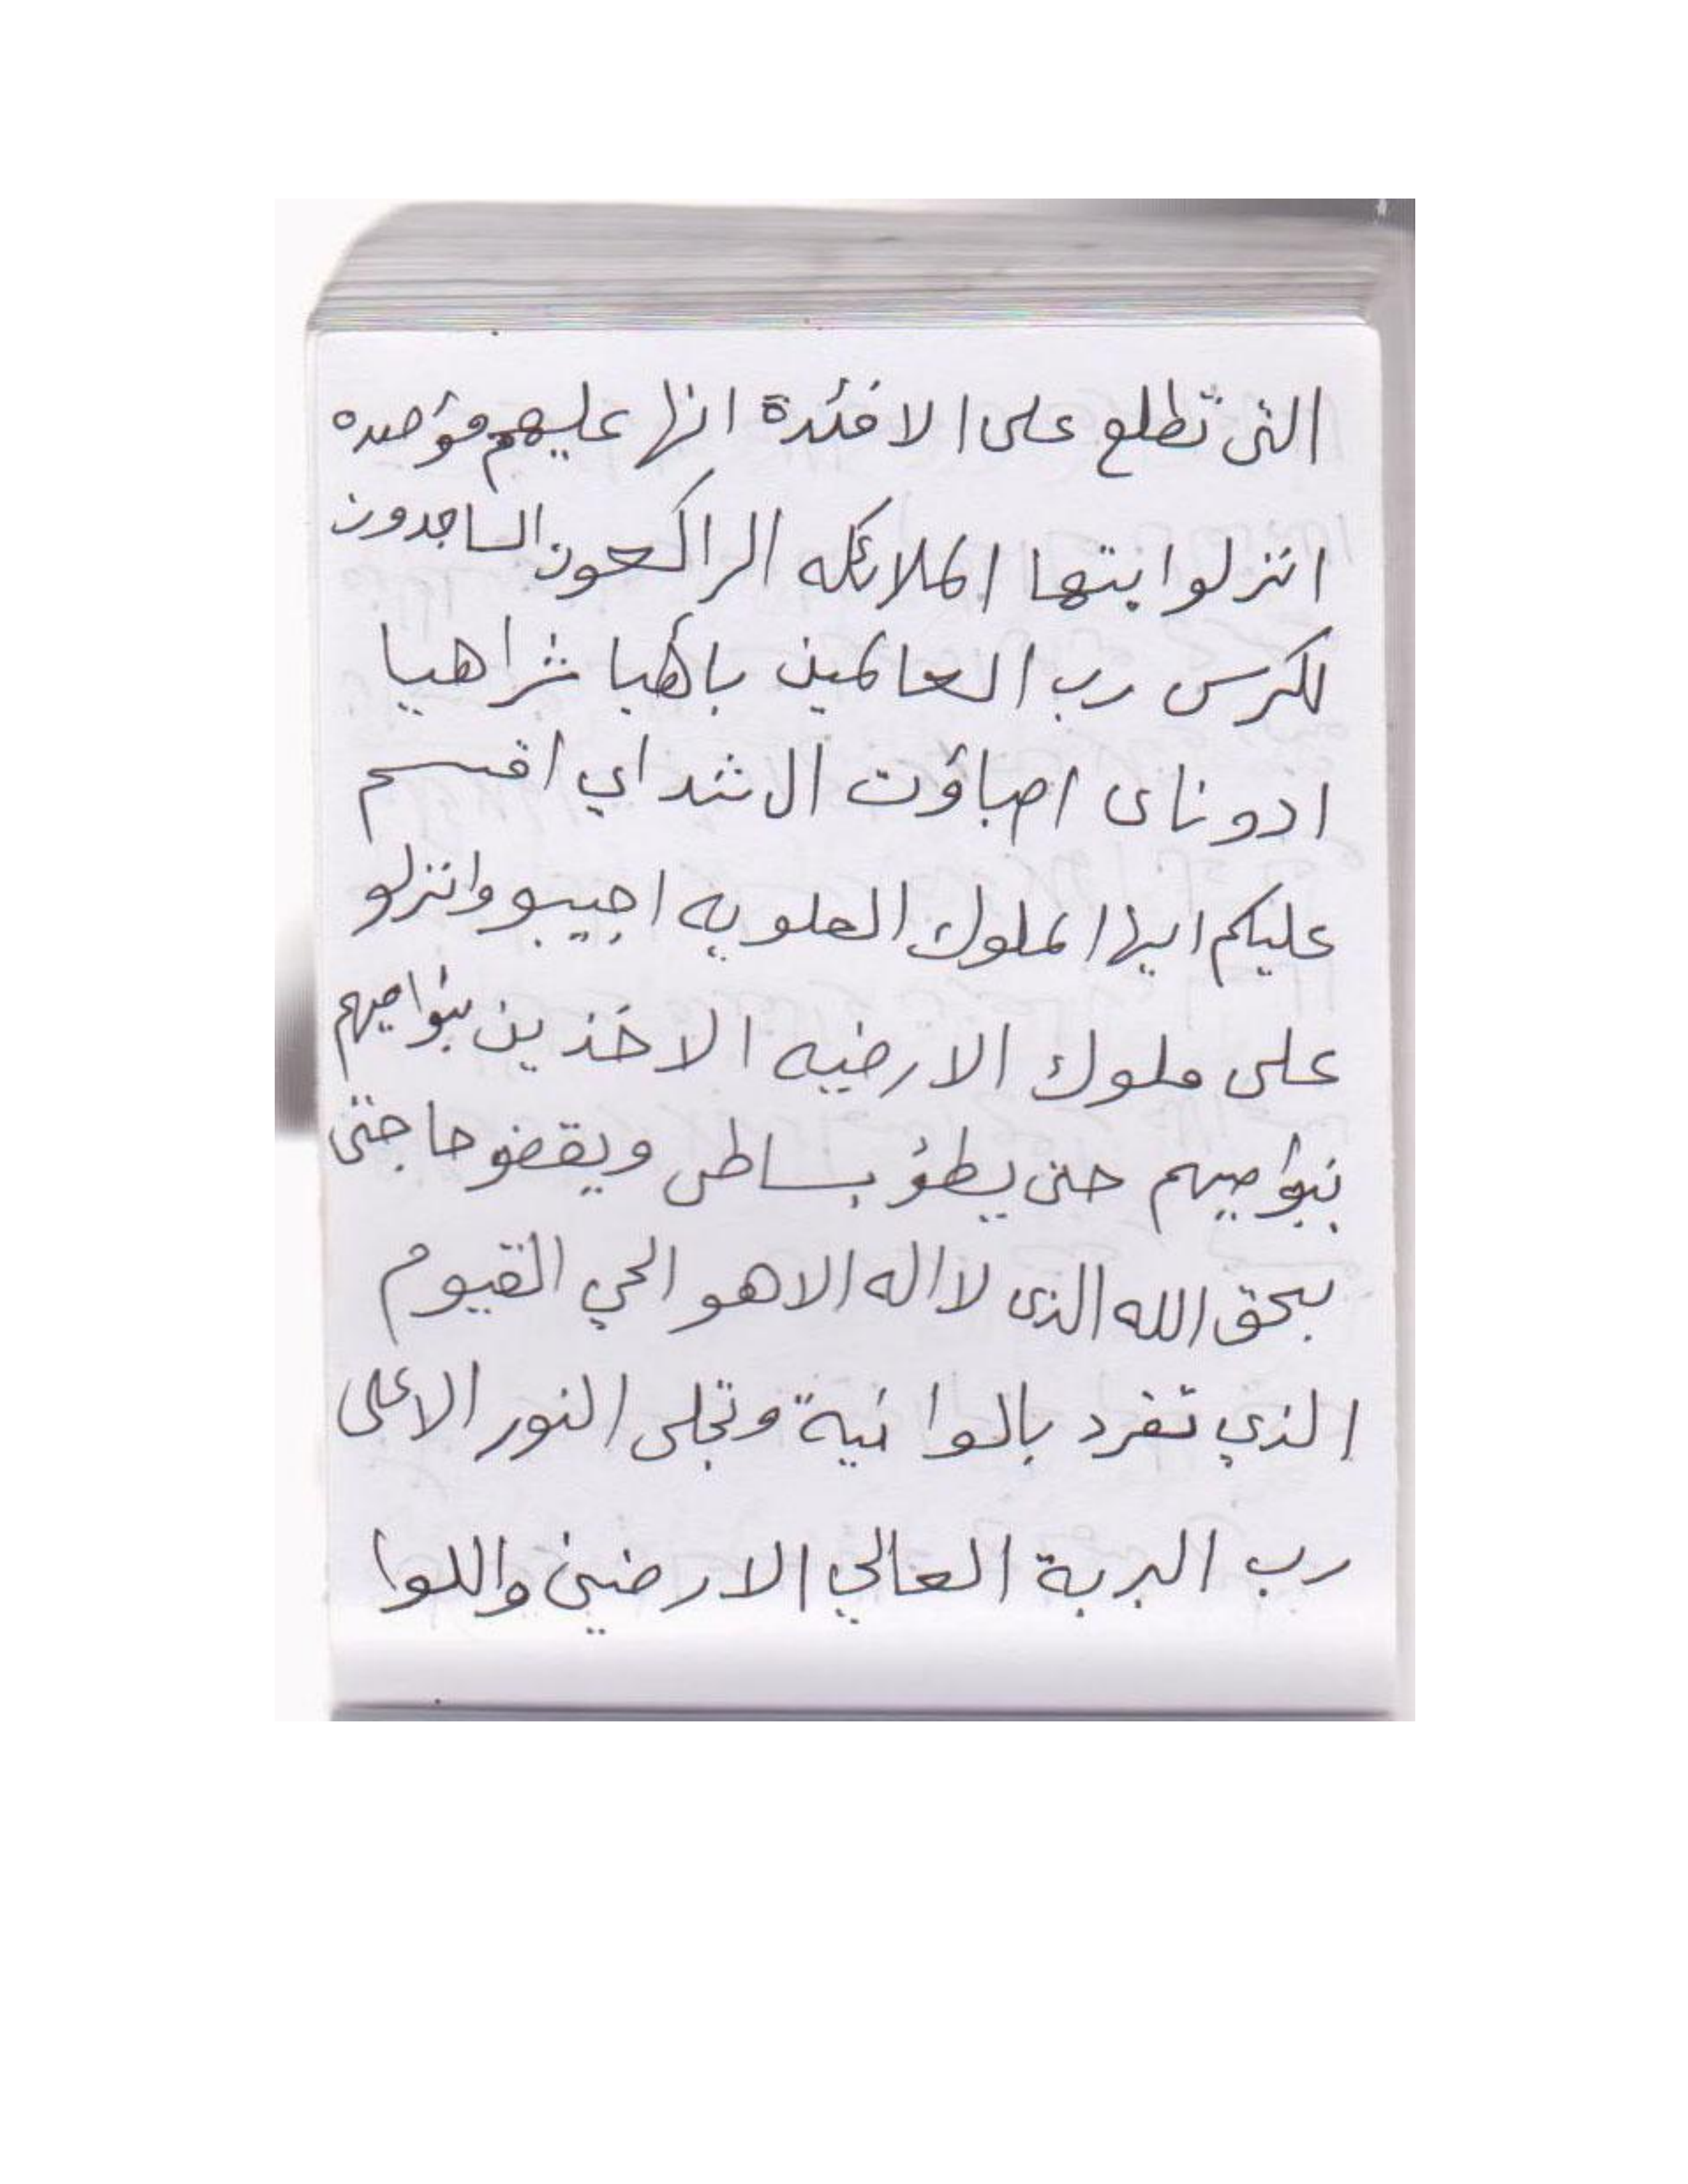 التى تطلع على الافئدة انها عليهم مؤصده
انزلوا يتها الملائكه الراكعون الساجدون
لكرس رب العالمين باهيا شراهيا
ادوناى اصباؤت ال شداي اقسم
عليكم ايها الملوك العلويه اجيبو وانزلو
على ملوك الارضيه الاخذين بنواصيهم
بنواصيهم حتى يطؤ بساطى ويقضو حاجتى
بحق الله الذى لا اله الا هو الحي القيوم
الذي تفرد بالوانية وتجلى النور الاعلى
رب البربة العالي الارضين واللوا